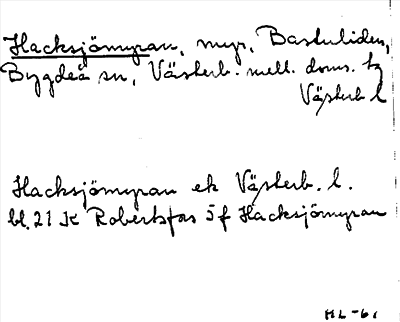 Hacksjömyran, myr, Bastuliden,
Bygdeå sn, Västerb. mell. doms. tg
Västerb l
Hacksjömyran ek Västerb. l.
bl. 21 K Robertsfors 5 f Hacksjömyran
HL-61